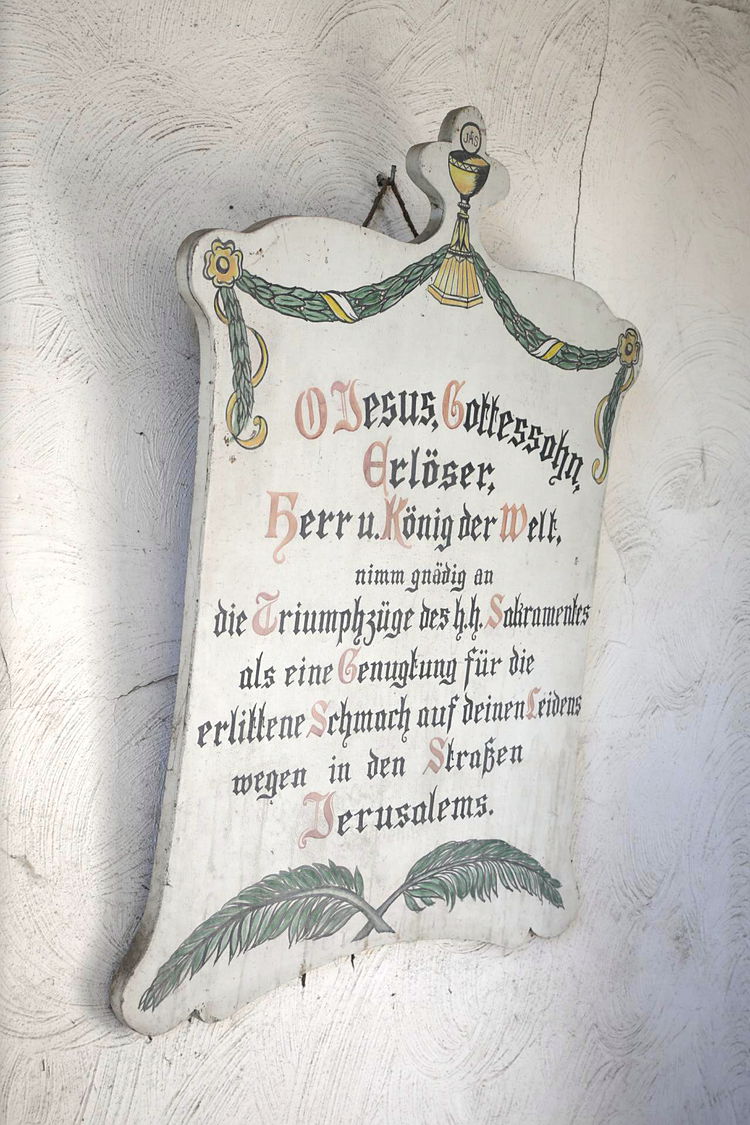 JHS
O Jesus, Gottessohn,
Erlöser,
Herr u. König der Welt,
nimm gnädig an
die Triumphzüge des h.h. Sakramentes
als eine Genugtung für die
erlittene Schmach auf deinen Leidens
wegen in den Straßen
Jerusalems.